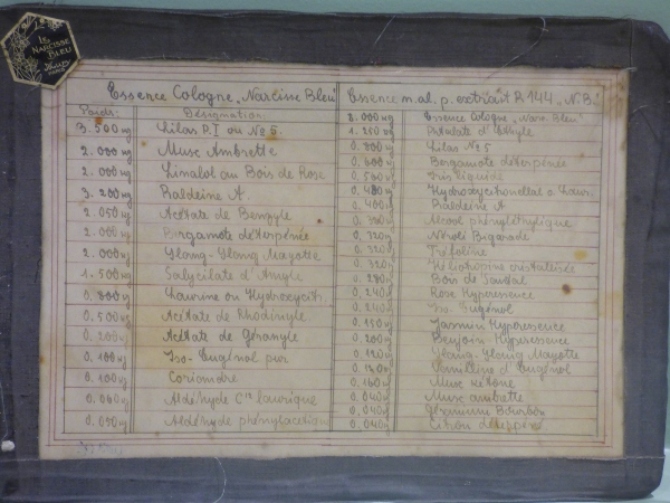 LE
NARCISSE
BLEU
Essence Cologne „Narcisse Bleu"
Poids:
Désignation:
3.500 kg Lilas P.I ou No 5.
2.000 kg Musc Ambrette
2.000 kg Linalol au Bois de Rose
3.200 kg Raldeine A.
2.050 kg Acétate de Benzyle
2.000 kg Bergamote déterpénée
2.000 kg Ylang-Ylang Mayotte
1.500 kg Salycilate d'Amyle
0.800 kg Laurine ou Hydroxycitr.
0.500 kg Acétate de Rhodinyle
0.200 kg Acétate de Géranyle
0.100 kg Iso-Eugénol pur
0.100 kg Coriandre
0.060 kg Aldéhyde C12 laurique
0.050 kg Aldéhyde phénylacétique
Essence n.al. p. extrait R 144 „N.B."
8.000 kg Essence Cologne „Narc. Bleu"
1.250 kg Phtalate d'Ethyle
Lilas No 5
Bergamote déterpénée
0.500 kg Iris liquide
0.400 kg Hydroxycitronellal o Laur.
0.400 kg Raldeine A
Alcool phényléthylique
0.320 kg Néroli Bigarade
0.320 kg Trefoline
0.320 kg Héliotropine cristalisée
0.280 kg Bois de Santal
0.240 kg Rose Hyperessence
0.240 kg Iso-Eugénol
Jasmin Hyperessence
0.200 kg Benjoin Hyperessence
0.120 kg Ylang-Ylang Mayotte
Vanilline d'Eugénol
0.160 kg Musc kétone
0.040 kg Musc ambrette
0.040 kg Géranium Bourbon
0.040 kg Citron